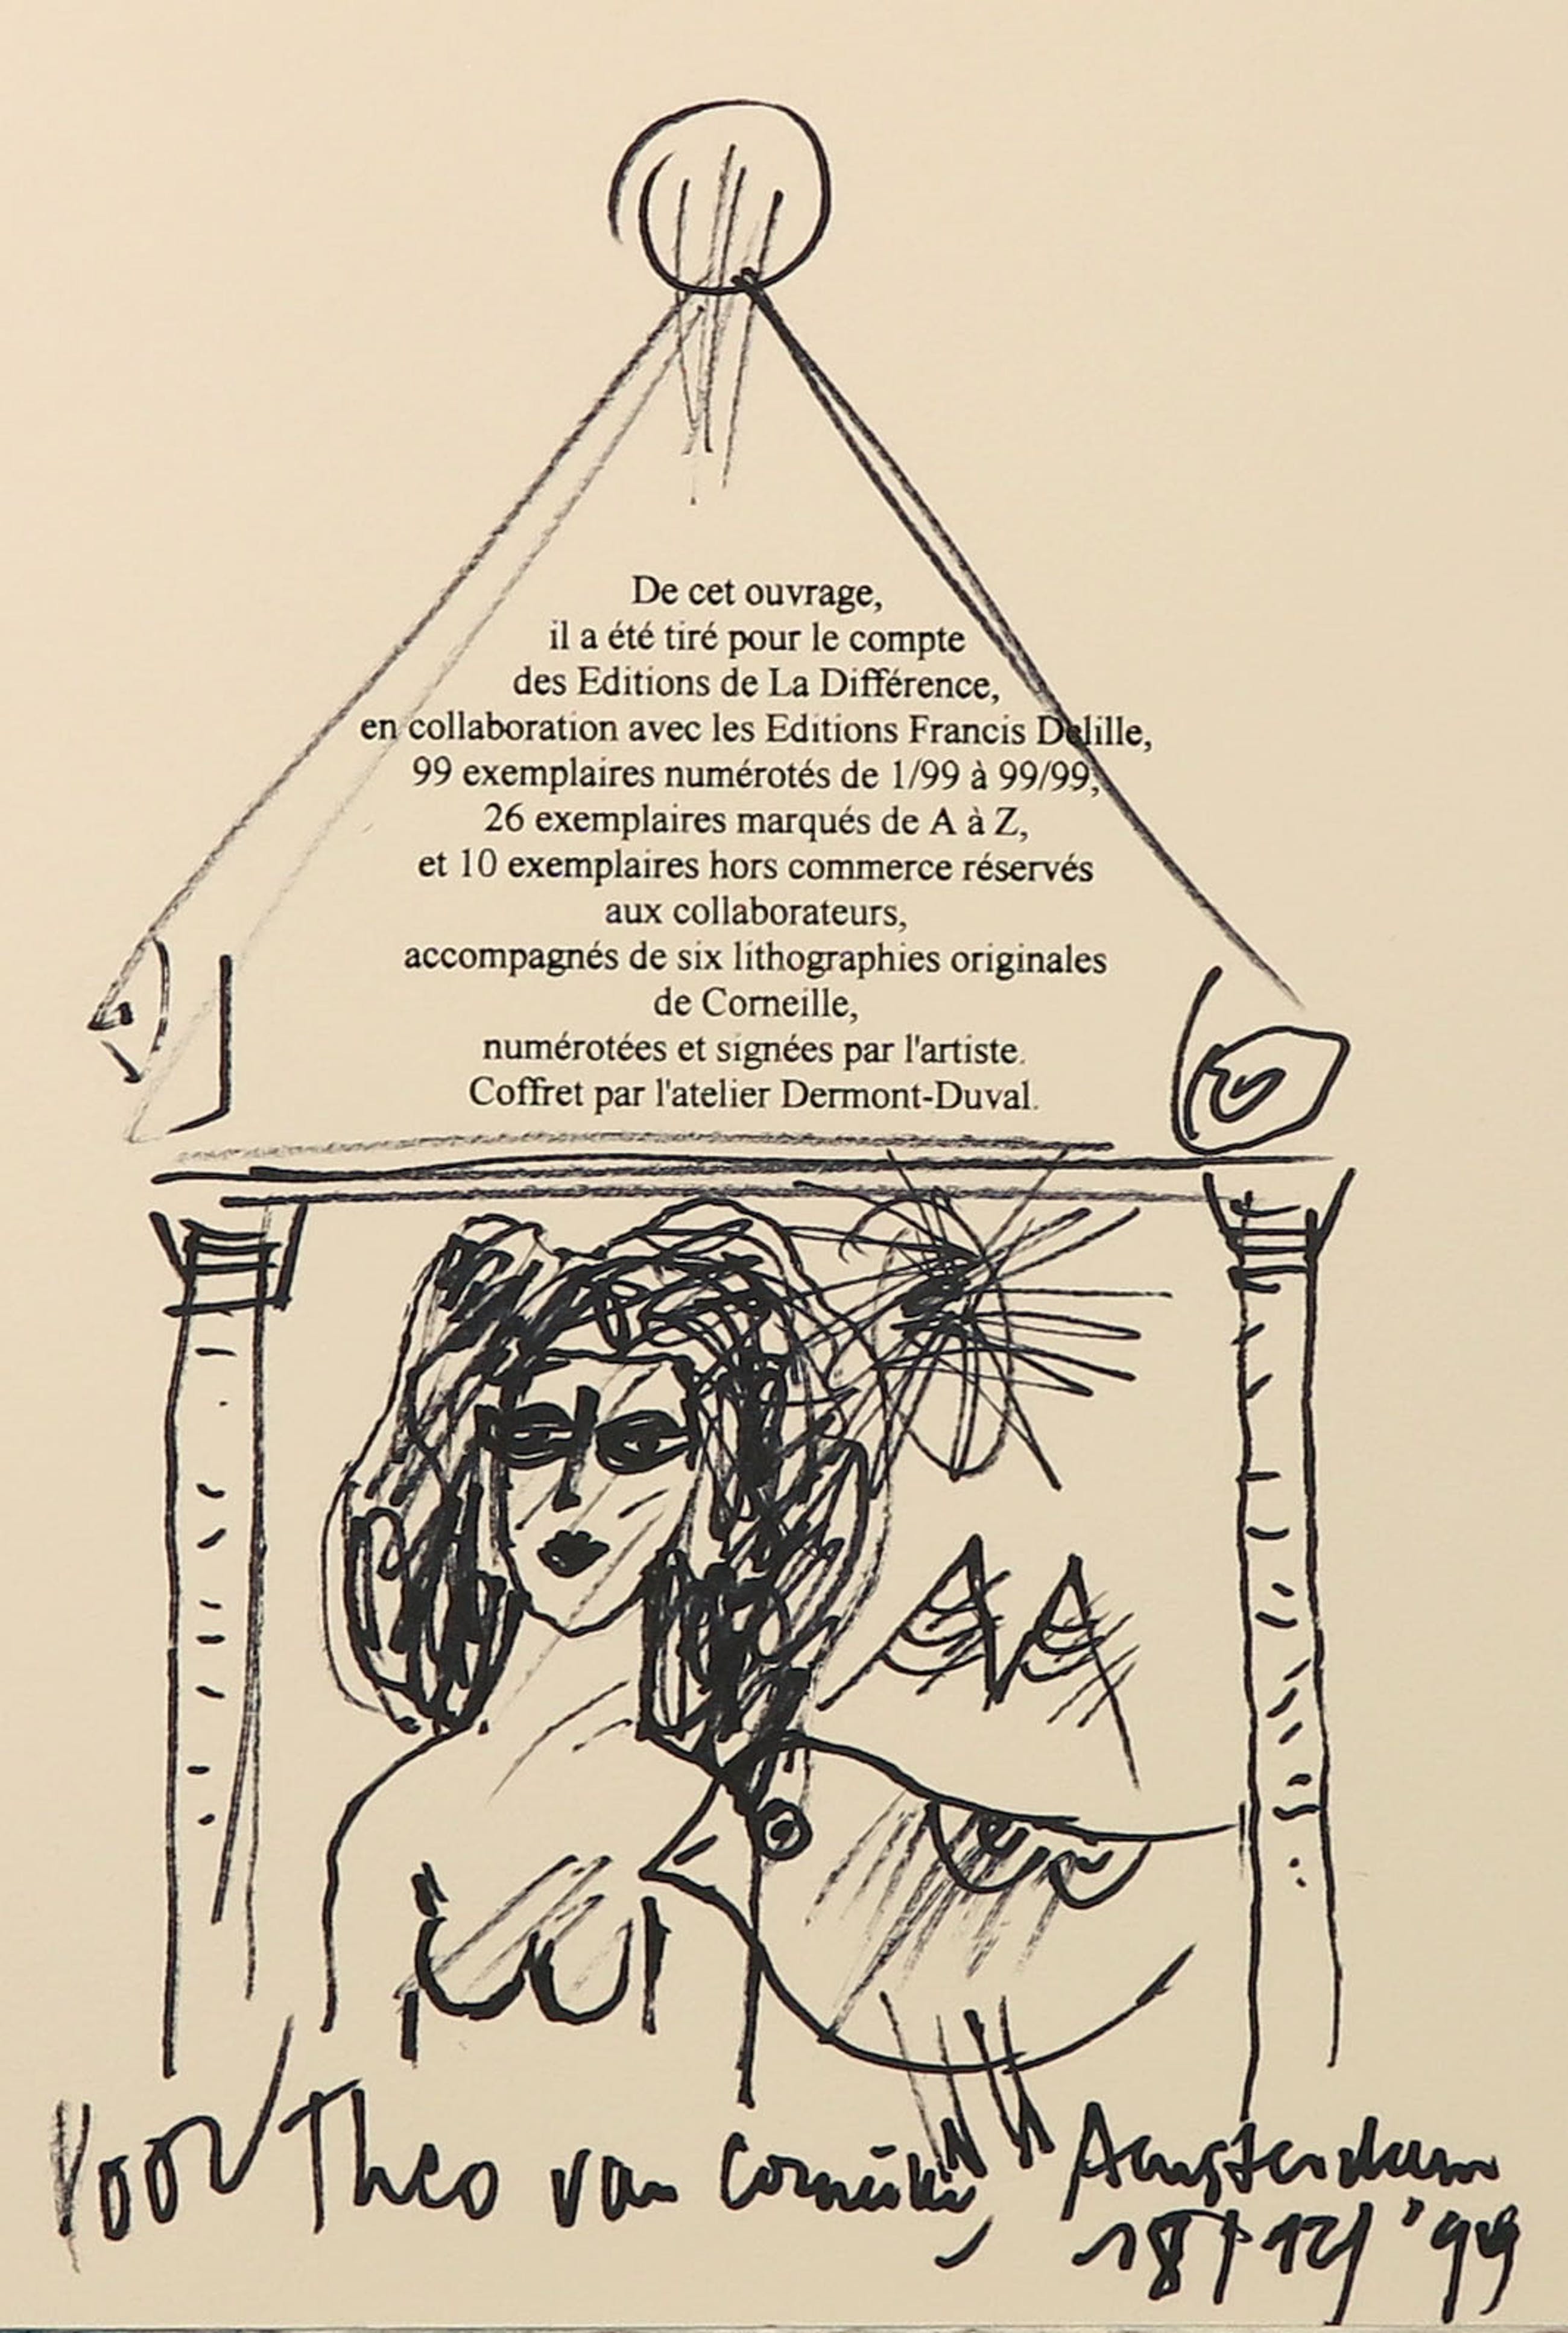 De cet ouvrage,
il a été tiré pour le compte
des Editions de La Différence,
en collaboration avec les Editions Francis Delille,
99 exemplaires numérotés de 1/99 à 99/99,
26 exemplaires marqués de A à Z,
et 10 exemplaires hors commerce réservés
aux collaborateurs,
accompagnés de six lithographies originales
de Corneille,
numérotées et signées par l'artiste.
Coffret par l'atelier Dermont-Duval.
Voor Theo van Amsterdam
18/12/'99